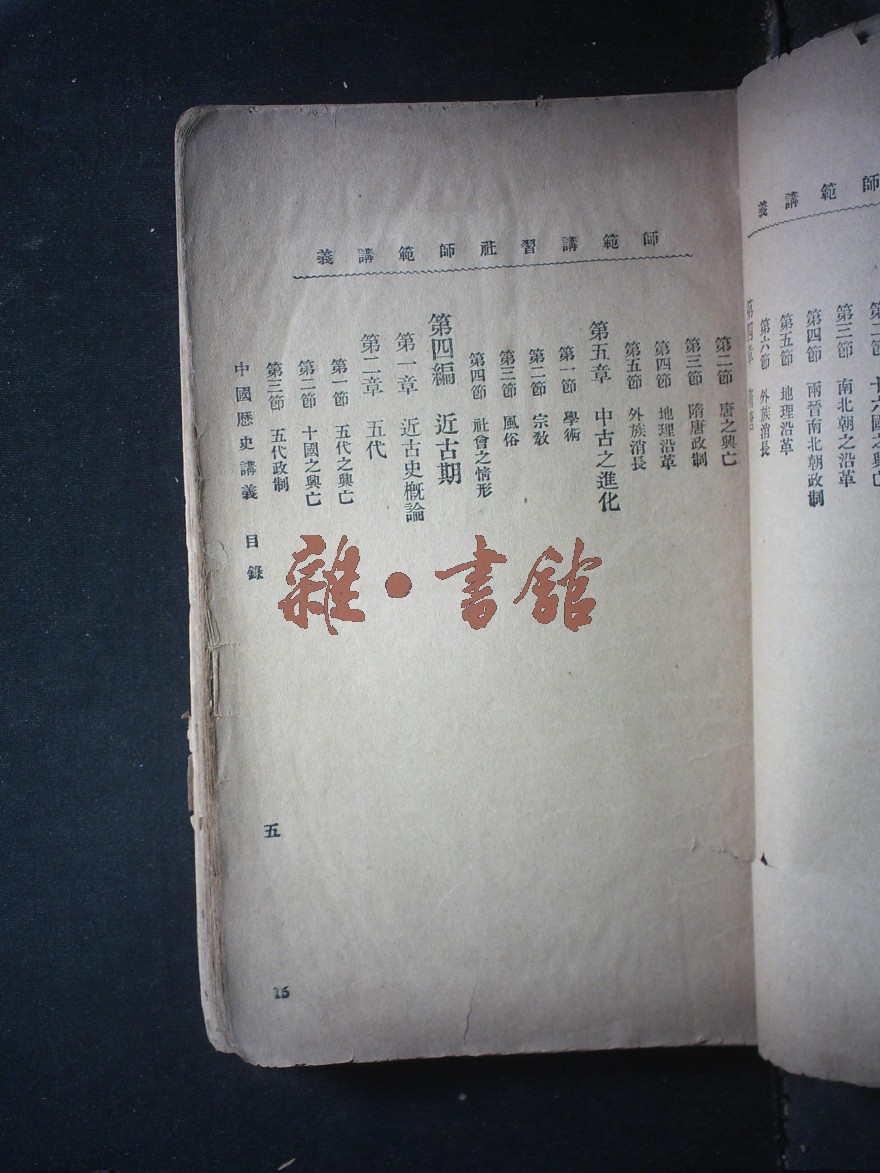 師範講義
第三節 南北朝之沿革
第四節 兩晉南北朝政制
第五節 地理沿革
第六節 外族消長
師範講習社師範講義
第二節 唐之興亡
第三節 隋唐政制
第四節 地理沿革
第五節 外族消長
第五章 中古之進化
第一節 學術
第二節 宗教
第三節 風俗
第四節 社會之情形
第四編 近古期
第一章 近古史概論
第二章 五代
第一節 五代之興亡
第二節 十國之興亡
第三節 五代政制
中國歷史講義 目錄
五
15
雜·書館